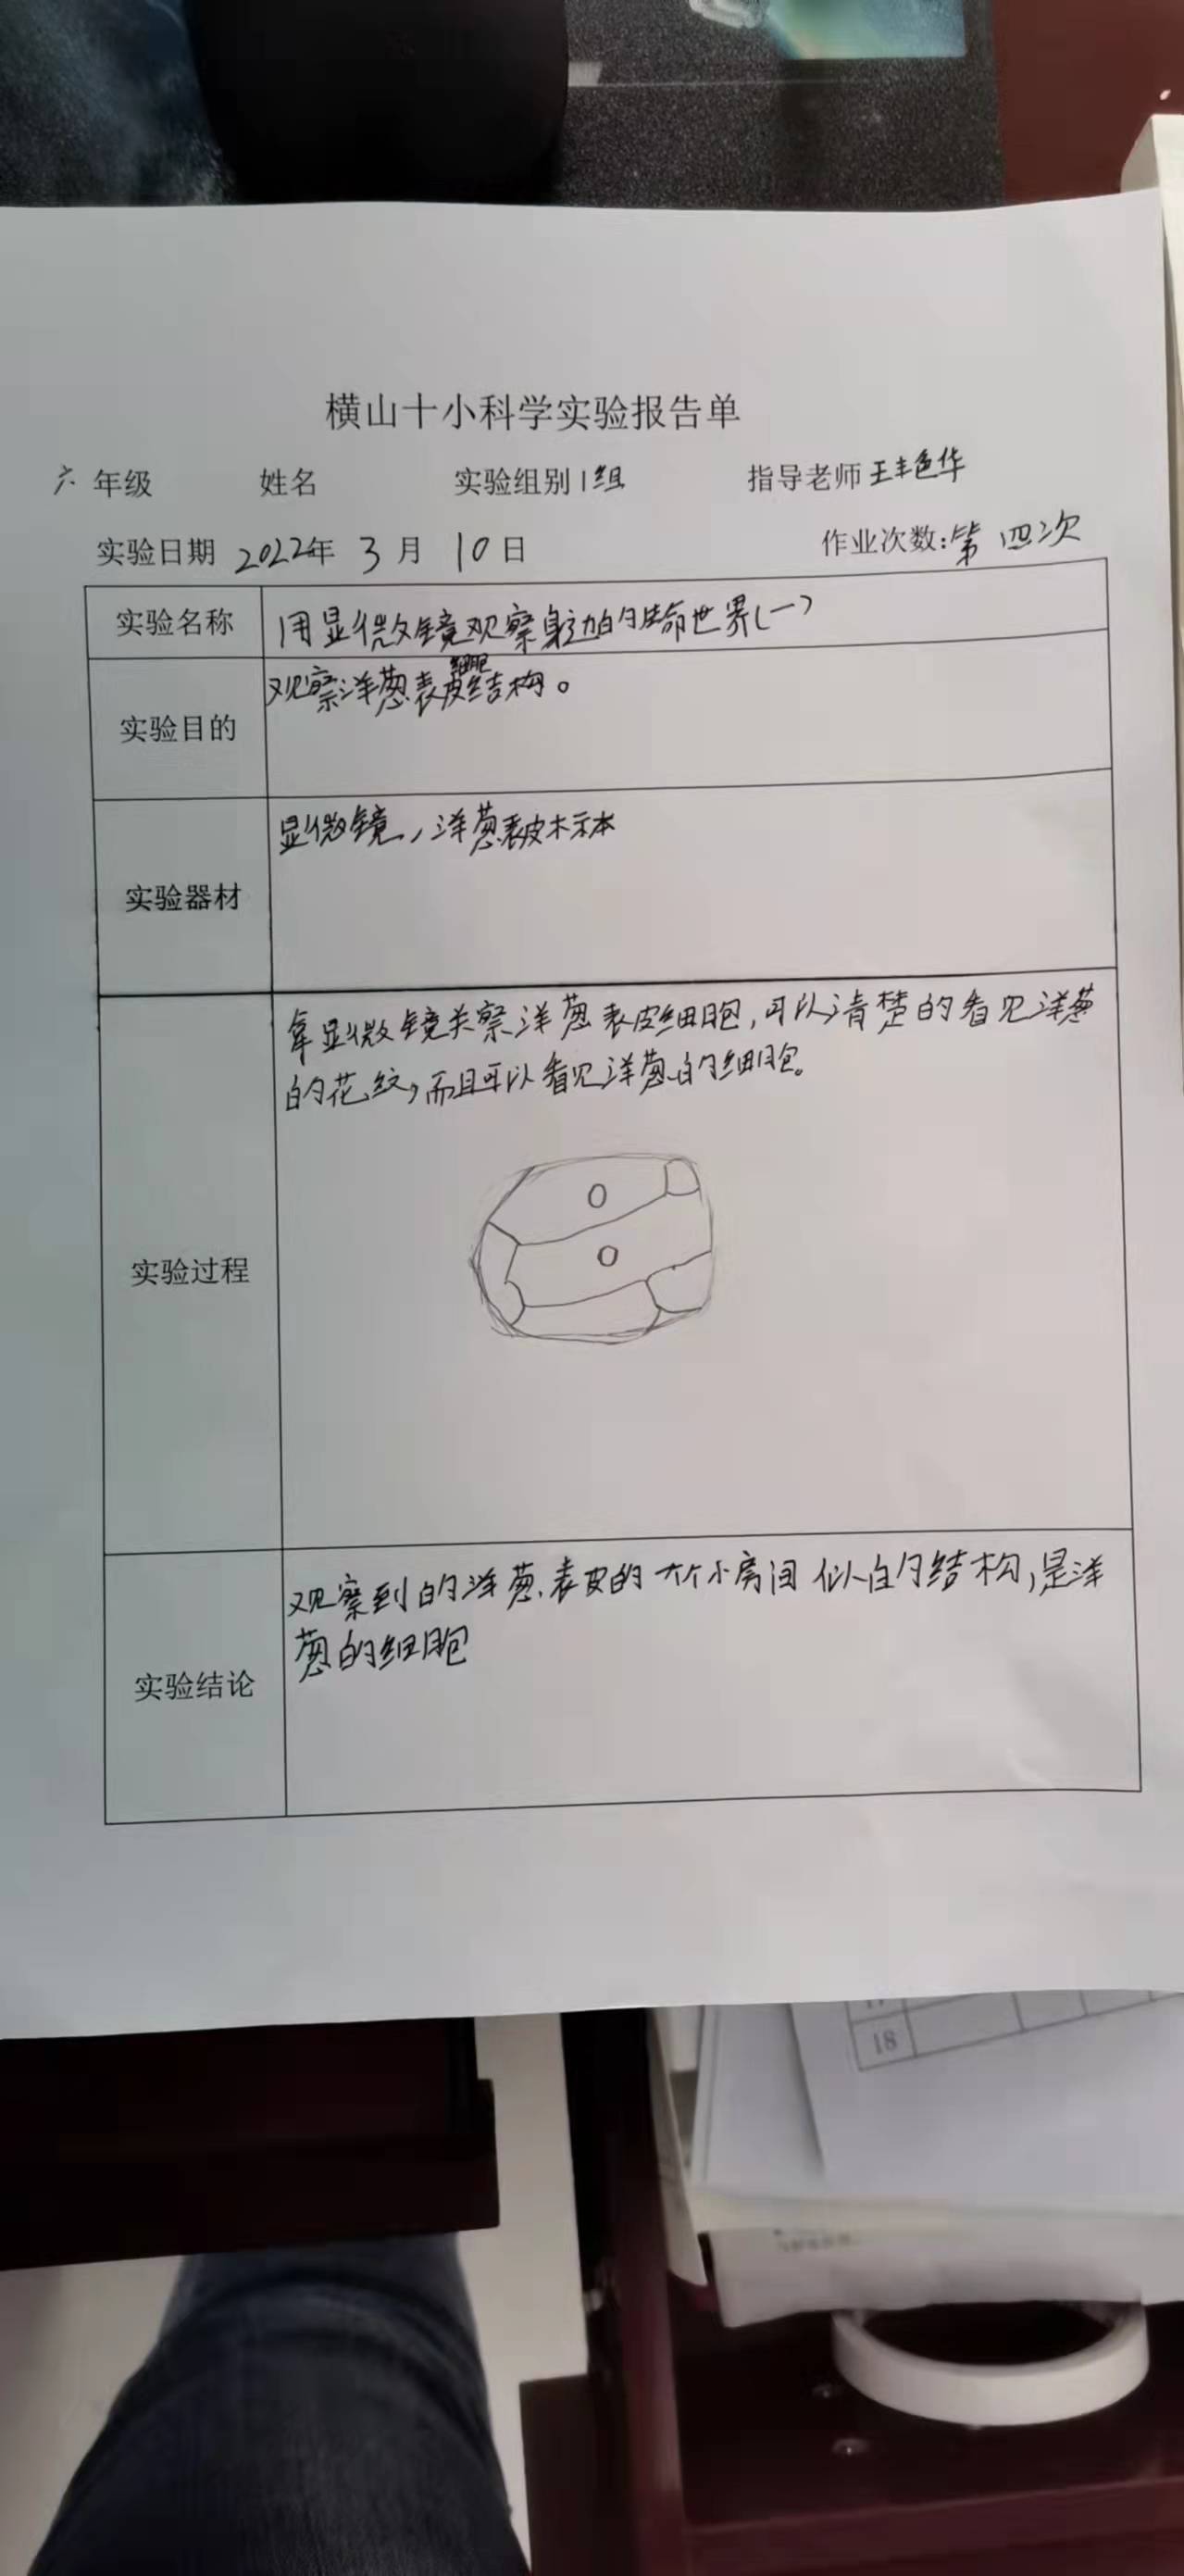 横山十小科学实验报告单
六年级 姓名 实验组别 1组 指导老师 王丰色华
实验日期 2022年 3月 10日 作业次数:第四次
实验名称 用显微镜观察身边的生命世界(一)
实验目的 观察洋葱表皮细胞结构。
实验器材 显微镜,洋葱表皮标本
实验过程 拿显微镜关察洋葱表皮细胞,可以清楚的看见洋葱
的花纹,而且可以看见洋葱的细胞。
实验结论 观察到的洋葱表皮的一个个小房间似的结构,是洋
葱的细胞
18